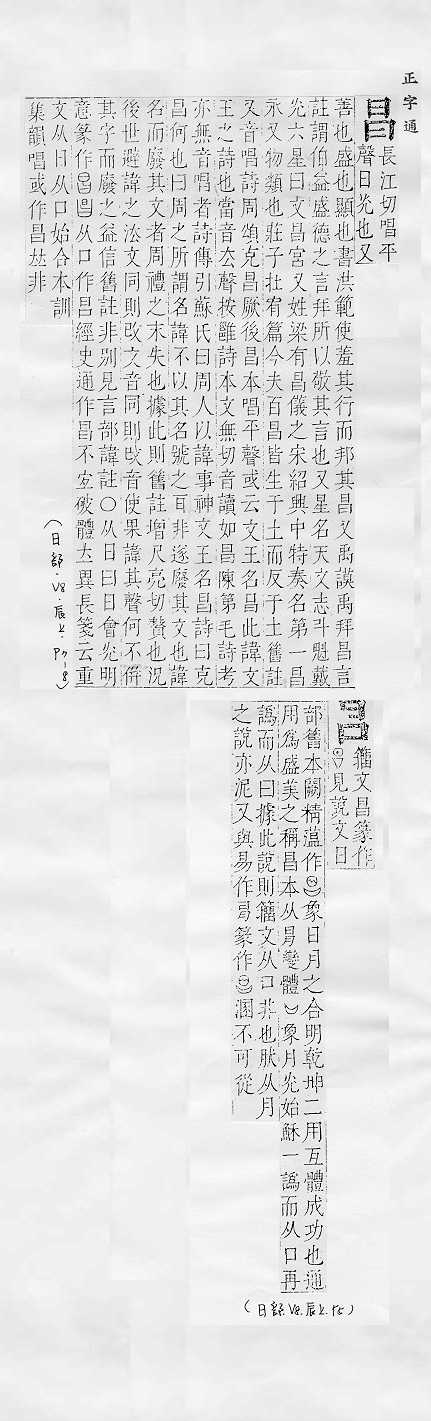 正字通
昌
長江切唱平
聲日光也又
善也盛也顯也書洪範使羞其行而邦其昌又禹謨禹拜昌言
註謂伯益盛德之言拜所以敬其言也又星名天文志斗魁戴
光六星曰文昌宮又姓梁有昌儀之宋紹興中特奏名第一昌
永又物類也莊子在宥篇今夫百昌皆生于土而反于土舊註
又音唱詩周頌克昌厥後昌本唱平聲或云文王名昌此諱文
王之詩也當音去聲按雝詩本文無切音讀如昌陳第毛詩考
亦無音唱者詩傳引蘇氏曰周人以諱事神文王名昌詩曰克
昌何也曰周之所謂名諱不以其名號之耳非遂廢其文也諱
名而廢其文者周禮之末失也據此則舊註增尺亮切贅也況
後世避諱之法文同則改文音同則改音使果諱其聲何不倂
其字而廢之益信舊註非別見言部諱註○从日曰日會光明
意篆作昌从口作昌經史通作昌不宜破體太異長箋云重
文从日从口始合本訓
集韻唱或作昌𠀤非
(日部.V8.辰上.P7-8)
籀文昌篆作
見說文日
部舊本闕精薀作象日月之合明乾坤二用互體成功也通
用爲盛美之稱昌本从變體象月光始穌一譌而从口再
譌而从曰據此說則籀文从口非也肰从月
之說亦泥又與易作篆作溷不可從
(日部.V8.辰上.P5)